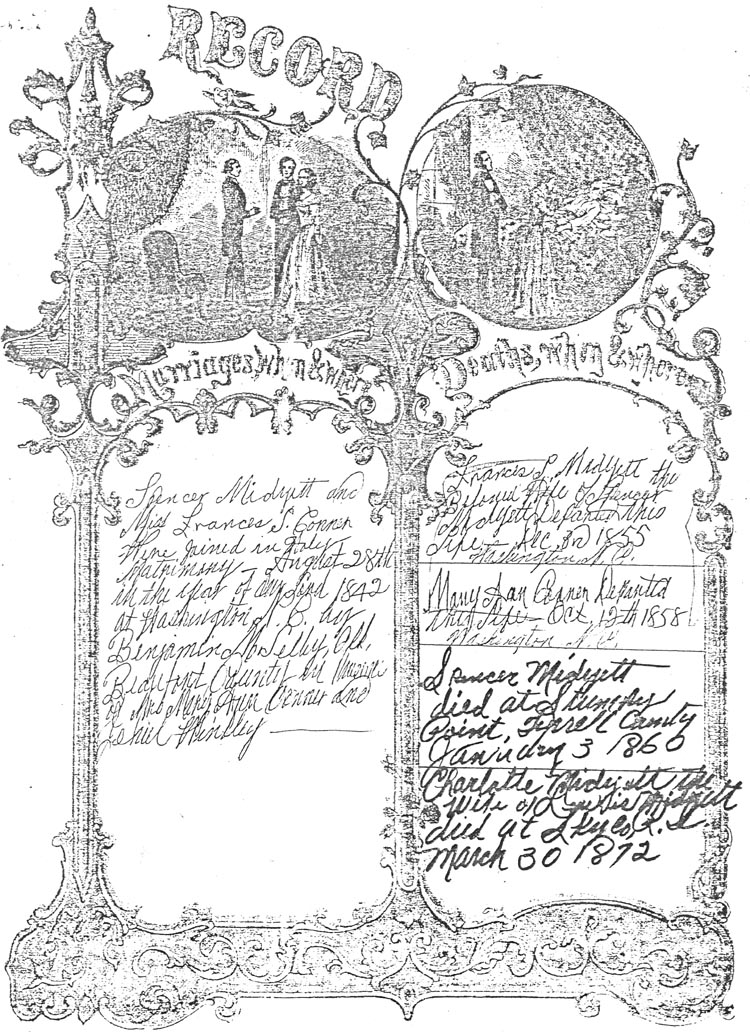 RECORD
Marriages, when & where
Deaths, when & where
Spencer Midyett and
Miss Frances S. Conner
Were joined in Holy
Matrimony August 28th
in the year of our Lord 1842
at Washington N. C. by
Benjamin Selby,
Beaufort County in
of Mrs Mary Ann Conner and
Windley
Frances S. Midyett the
Beloved Wife of Spencer
Midyett Departed this
Life Dec 3rd 1855
Washington N.C.
Mary Ann Conner Departed
this Life Oct, 12th 1858
Washington N.C.
Spencer Midyett
died at Stumpy
Point, Tyrrell County
January 3 1860
Charlotte Midyett the
Wife of Midyett
died at
March 30 1872